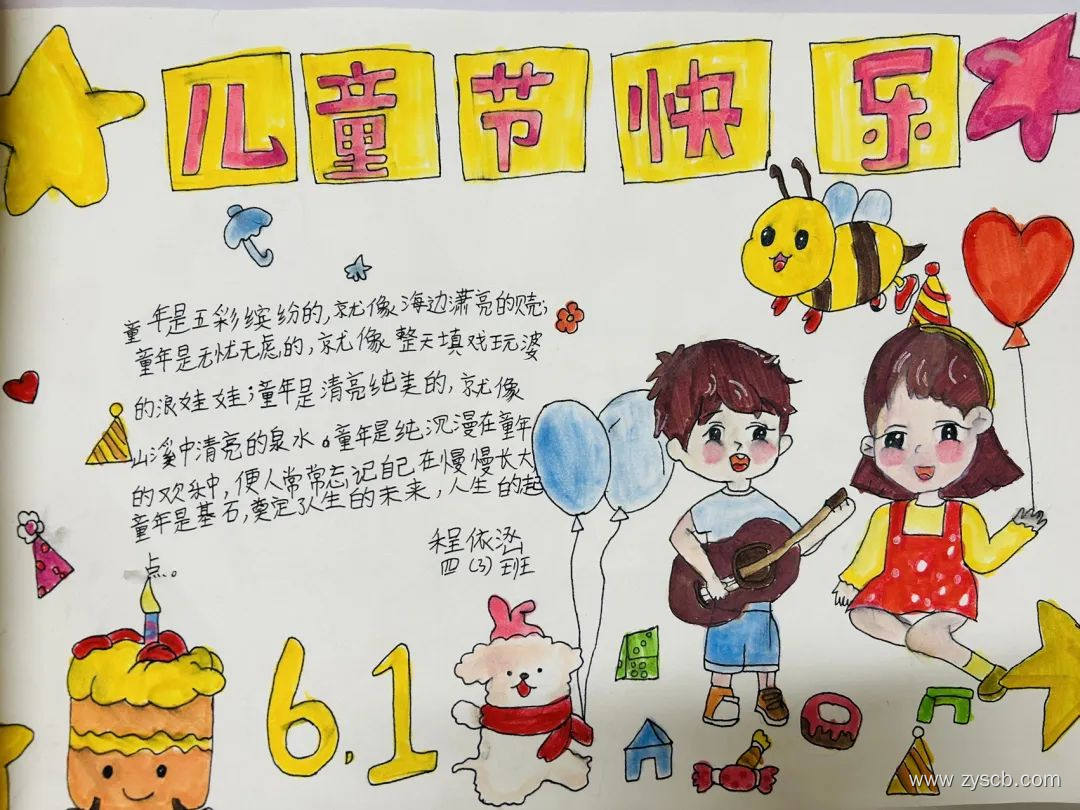 儿童节快乐
童年是五彩缤纷的,就像海边漂亮的贝壳;
童年是无忧无虑的,就像整天填戏玩婆
的浪娃娃;童年是清亮纯美的,就像
山溪中清亮的泉水。童年是纯沉漫在童年
的欢乐中,便人常常忘记自己在慢慢长大
童年是基石,奠定了人生的未来,人生的起
点。
程依涵
四(3)班
6.1
www.zyscb.com